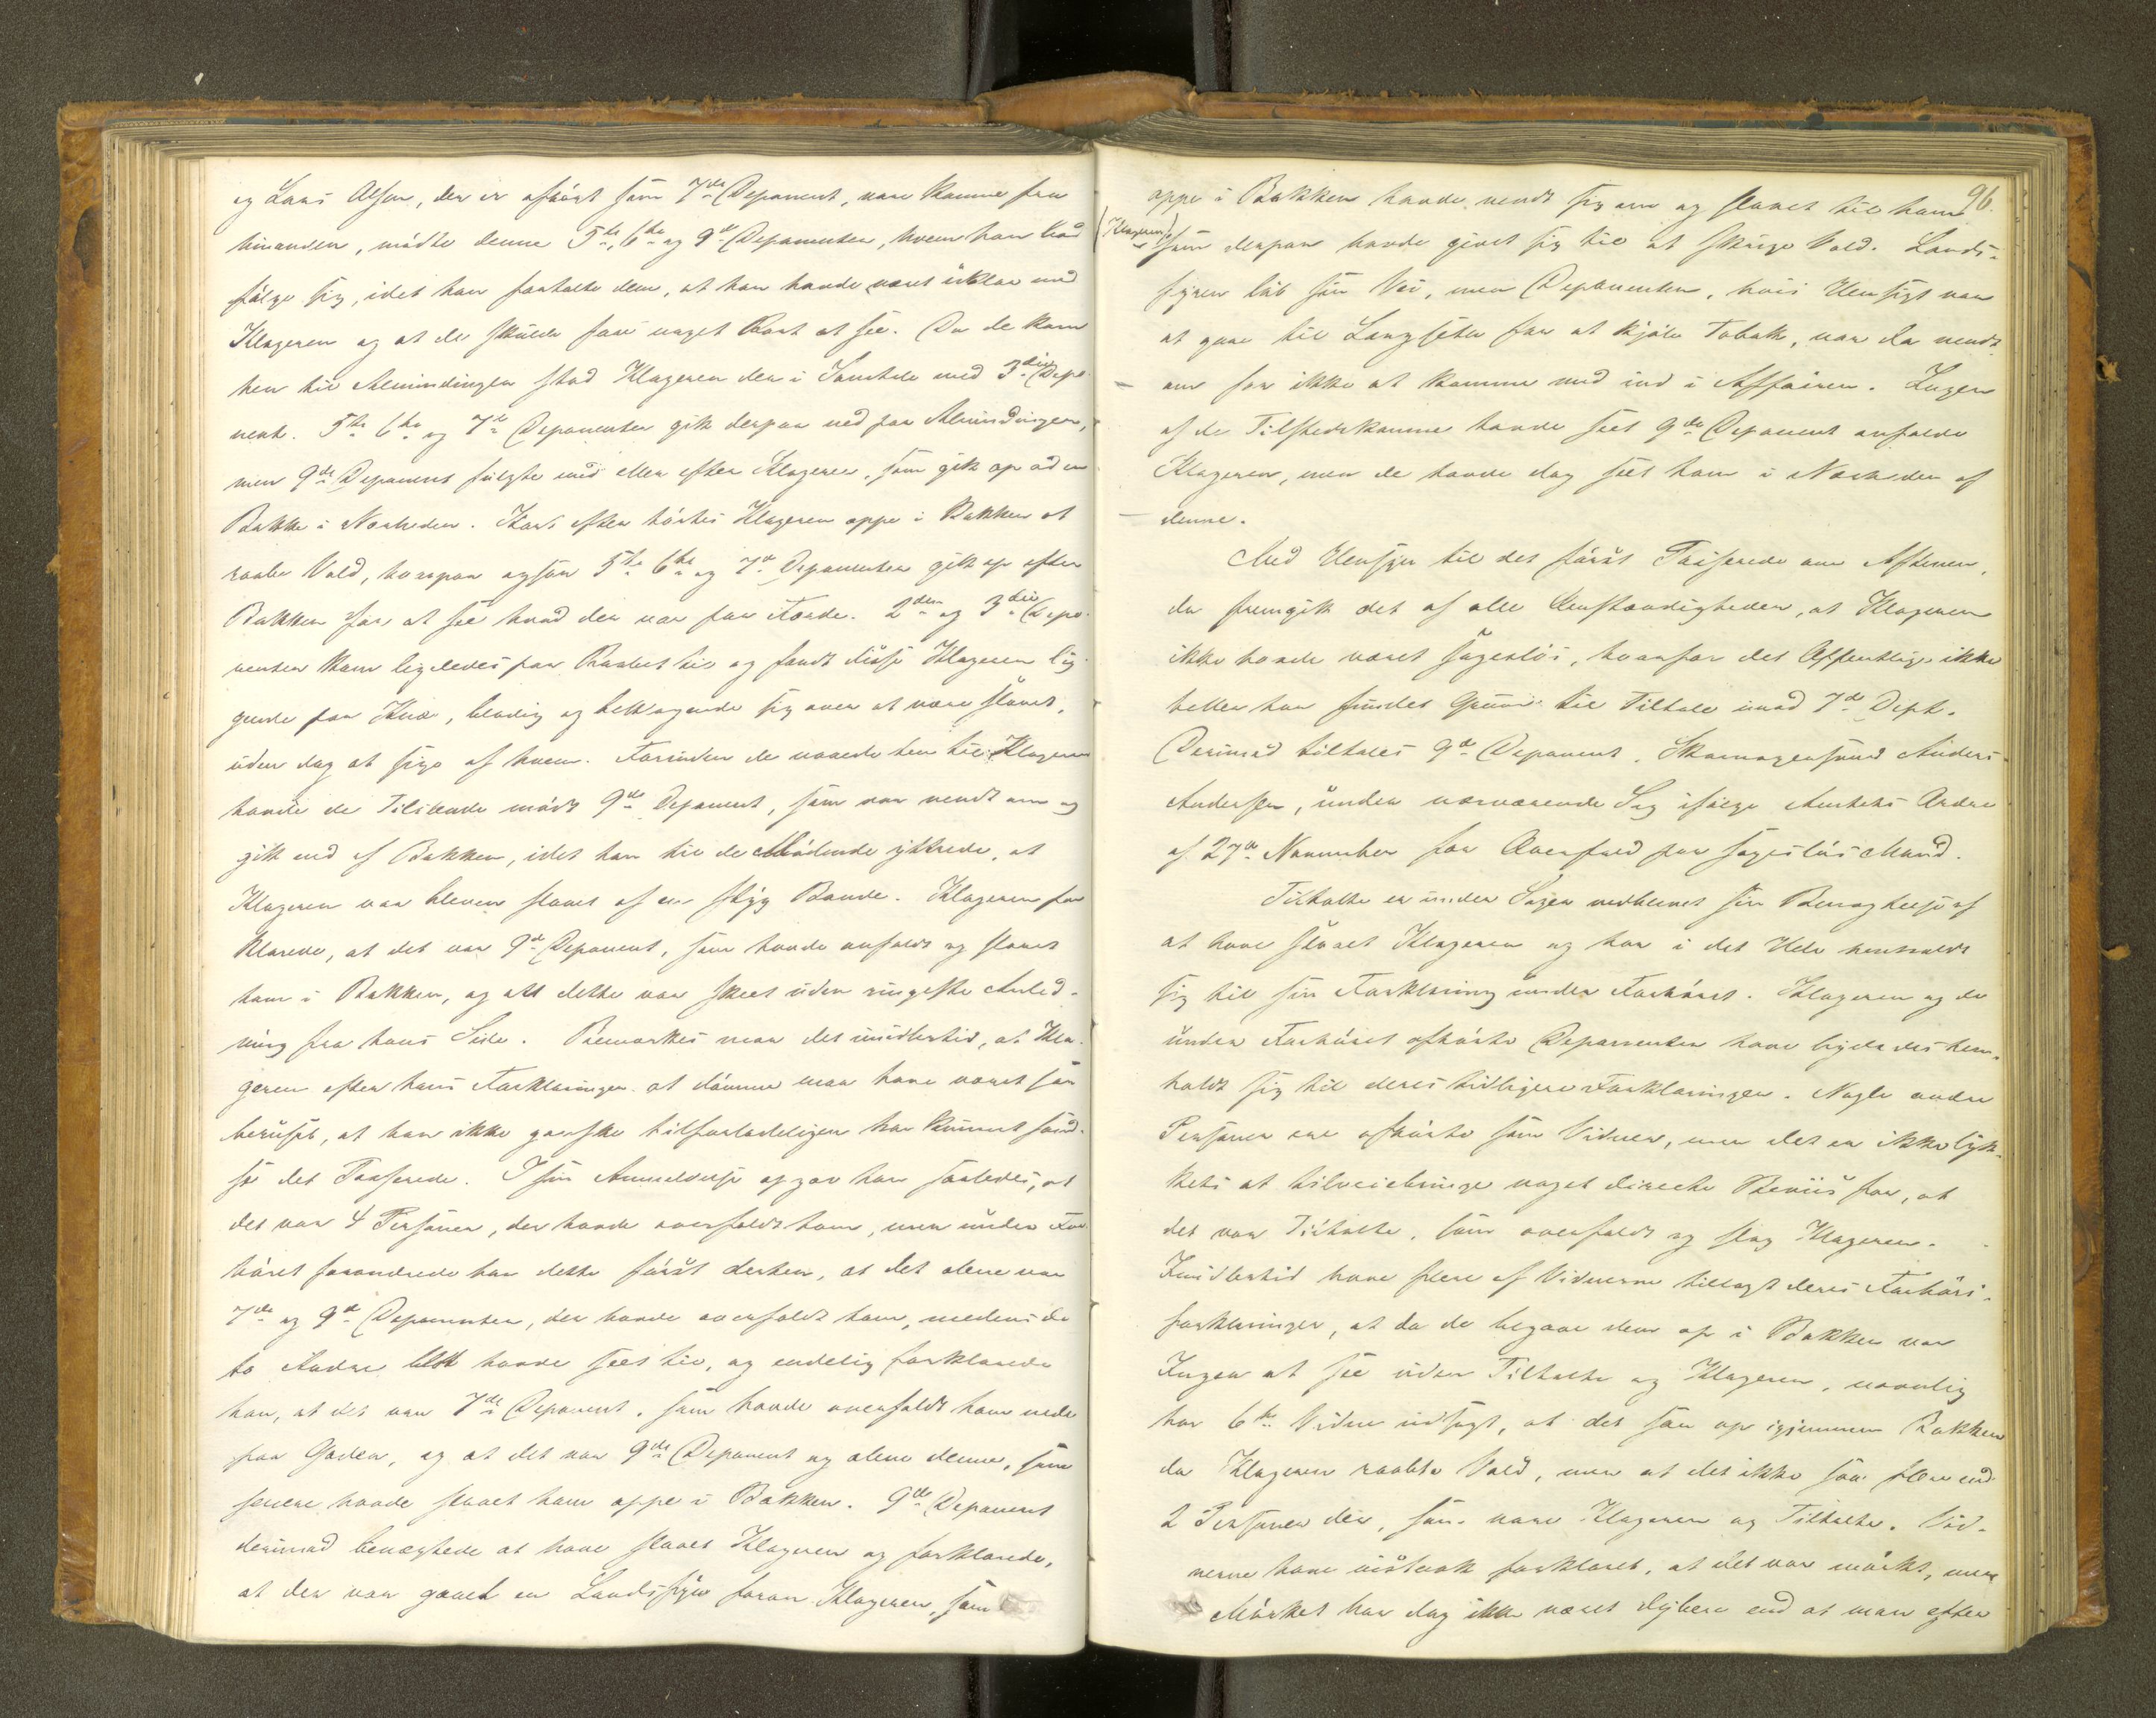 og Lars Olsen, der er afhørt som 7de Deponent, vare komne fra
hinanden, mødte denne 5te, 6te og 9de Deponenter, hvem han bad
følge sig, idet han fortalte dem, at han havde været uklar med
Klageren og at de skulde faae noget Rart at see. Da de kom
hen til Almindingen stod Klageren der i Samtale med 3die Depo-
nent. 5te 6te og 7de Deponenter gik derpaa ned paa Almindingen,
men 9de Deponent fulgte med eller efter Klageren, som gik op ad en
Bakke i Nærheden. Kort efter hørtes Klageren oppe i Bakken at
raabe Vold, hvorpaa ogsaa 5te 6te og 7de Deponenter gik op efter
Bakken for at see hvad der var paa Færde. 2den og 3die Depo-
nenter kom ligeledes paa Raabet til og fandt disse Klageren lig-
gende paa Knæ, blodig og beklagende sig over at være slaaet,
uden dog at sige af hvem. Forinden de naaede hen til Klageren
havde de Tililende mødt 9de Deponent, som var vendt om og
gik ned af Bakken, idet han til de Mødende yttrede, at
Klageren var bleven slaaet af en styg Bande. Klageren for
klarede, at det var 9de Deponent, som havde anfaldt og slaaet
ham i Bakken, og at dette var skeet uden ringeste Anled-
ning fra hans Side. Bemærkes maa det imidlertid, at Kla-
geren efter hans Forklaringer at dømme maa have været saa
beruset, at han ikke ganske tilforladeligen har kunnet sand-
se det Passerede. I sin Anmeldelse opgav han saaledes, at
det var 4 Personer, der havde overfaldt ham, men under For-
høret forandrede han dette først derhen, at det alene var
7de og 9de Deponenter, der havde overfaldt ham, medens de
to Andre blot havde seet til, og endelig forklarede
han, at det var 7de Deponent, som havde overfaldt ham nede
paa Gaden, og at det var 9de Deponent og alene denne, som
senere havde slaaet ham oppe i Bakken. 9de Deponent
derimod benægtede at have slaaet Klageren og forklarede,
at der var gaaet en Landsfyr foran Klageren, som
96.
oppe i Bakken havde vendt sig om og slaaet til ham
(Klageren)
som derpaa havde givet sig til at skrige Vold. Lands-
fyren løb sin Vei, men Deponenten, hvis Hensigt var
at gaae til Langseter for at kjøbe Tobak, var da vendt
om for ikke at komme med ind i Affairen. Ingen
af de Tilstedekomne havde seet 9de Deponent anfalde
Klageren, men de havde dog seet ham i Nærheden af
denne.
Med Hensyn til det først Passerede om Aftenen,
da fremgik det af alle Omstændigheder, at Klageren
ikke havde været sagesløs, hvorfor det Offentlige ikke
heller har fundet Grund til Tiltale imod 7de Dept.
Derimod tiltales 9de Deponent, Skomagersvend Anders
Andersen, under nærværende Sag ifølge Amtets Ordre
af 27de November for Overfald paa sagesløs Mand.
Tiltalte er under Sagen vedblevet sin Benægtelse af
at have slaaet Klageren og har i det Hele henholdt
sig til sin Forklaring under Forhøret. Klageren og de
under Forhøret afhørte Deponenter have ligeledes hen-
holdt sig til deres tidligere Forklaringer. Nogle andre
Personer ere afhørte som Vidner, men det er ikke lyk-
kets at tilveiebringe noget directe Beviis for, at
det var Tiltalte, som overfaldt og slog Klageren.
Imidlertid have flere af Vidnerne tillagt deres Forhørs-
forklaringer, at da de begave dem op i Bakken var
Ingen at see uden Tiltalte og Klageren, navnlig
har 6te Vidne udsagt, at det saae op igjennem Bakken
da Klageren raabte Vold, men at det ikke saae flere end
2 Personer der, som vare Klageren og Tiltalte. Vid-
nerne have vistnok forklaret, at det var mørkt, men
Mørket har dog ikke været dybere end at man efter